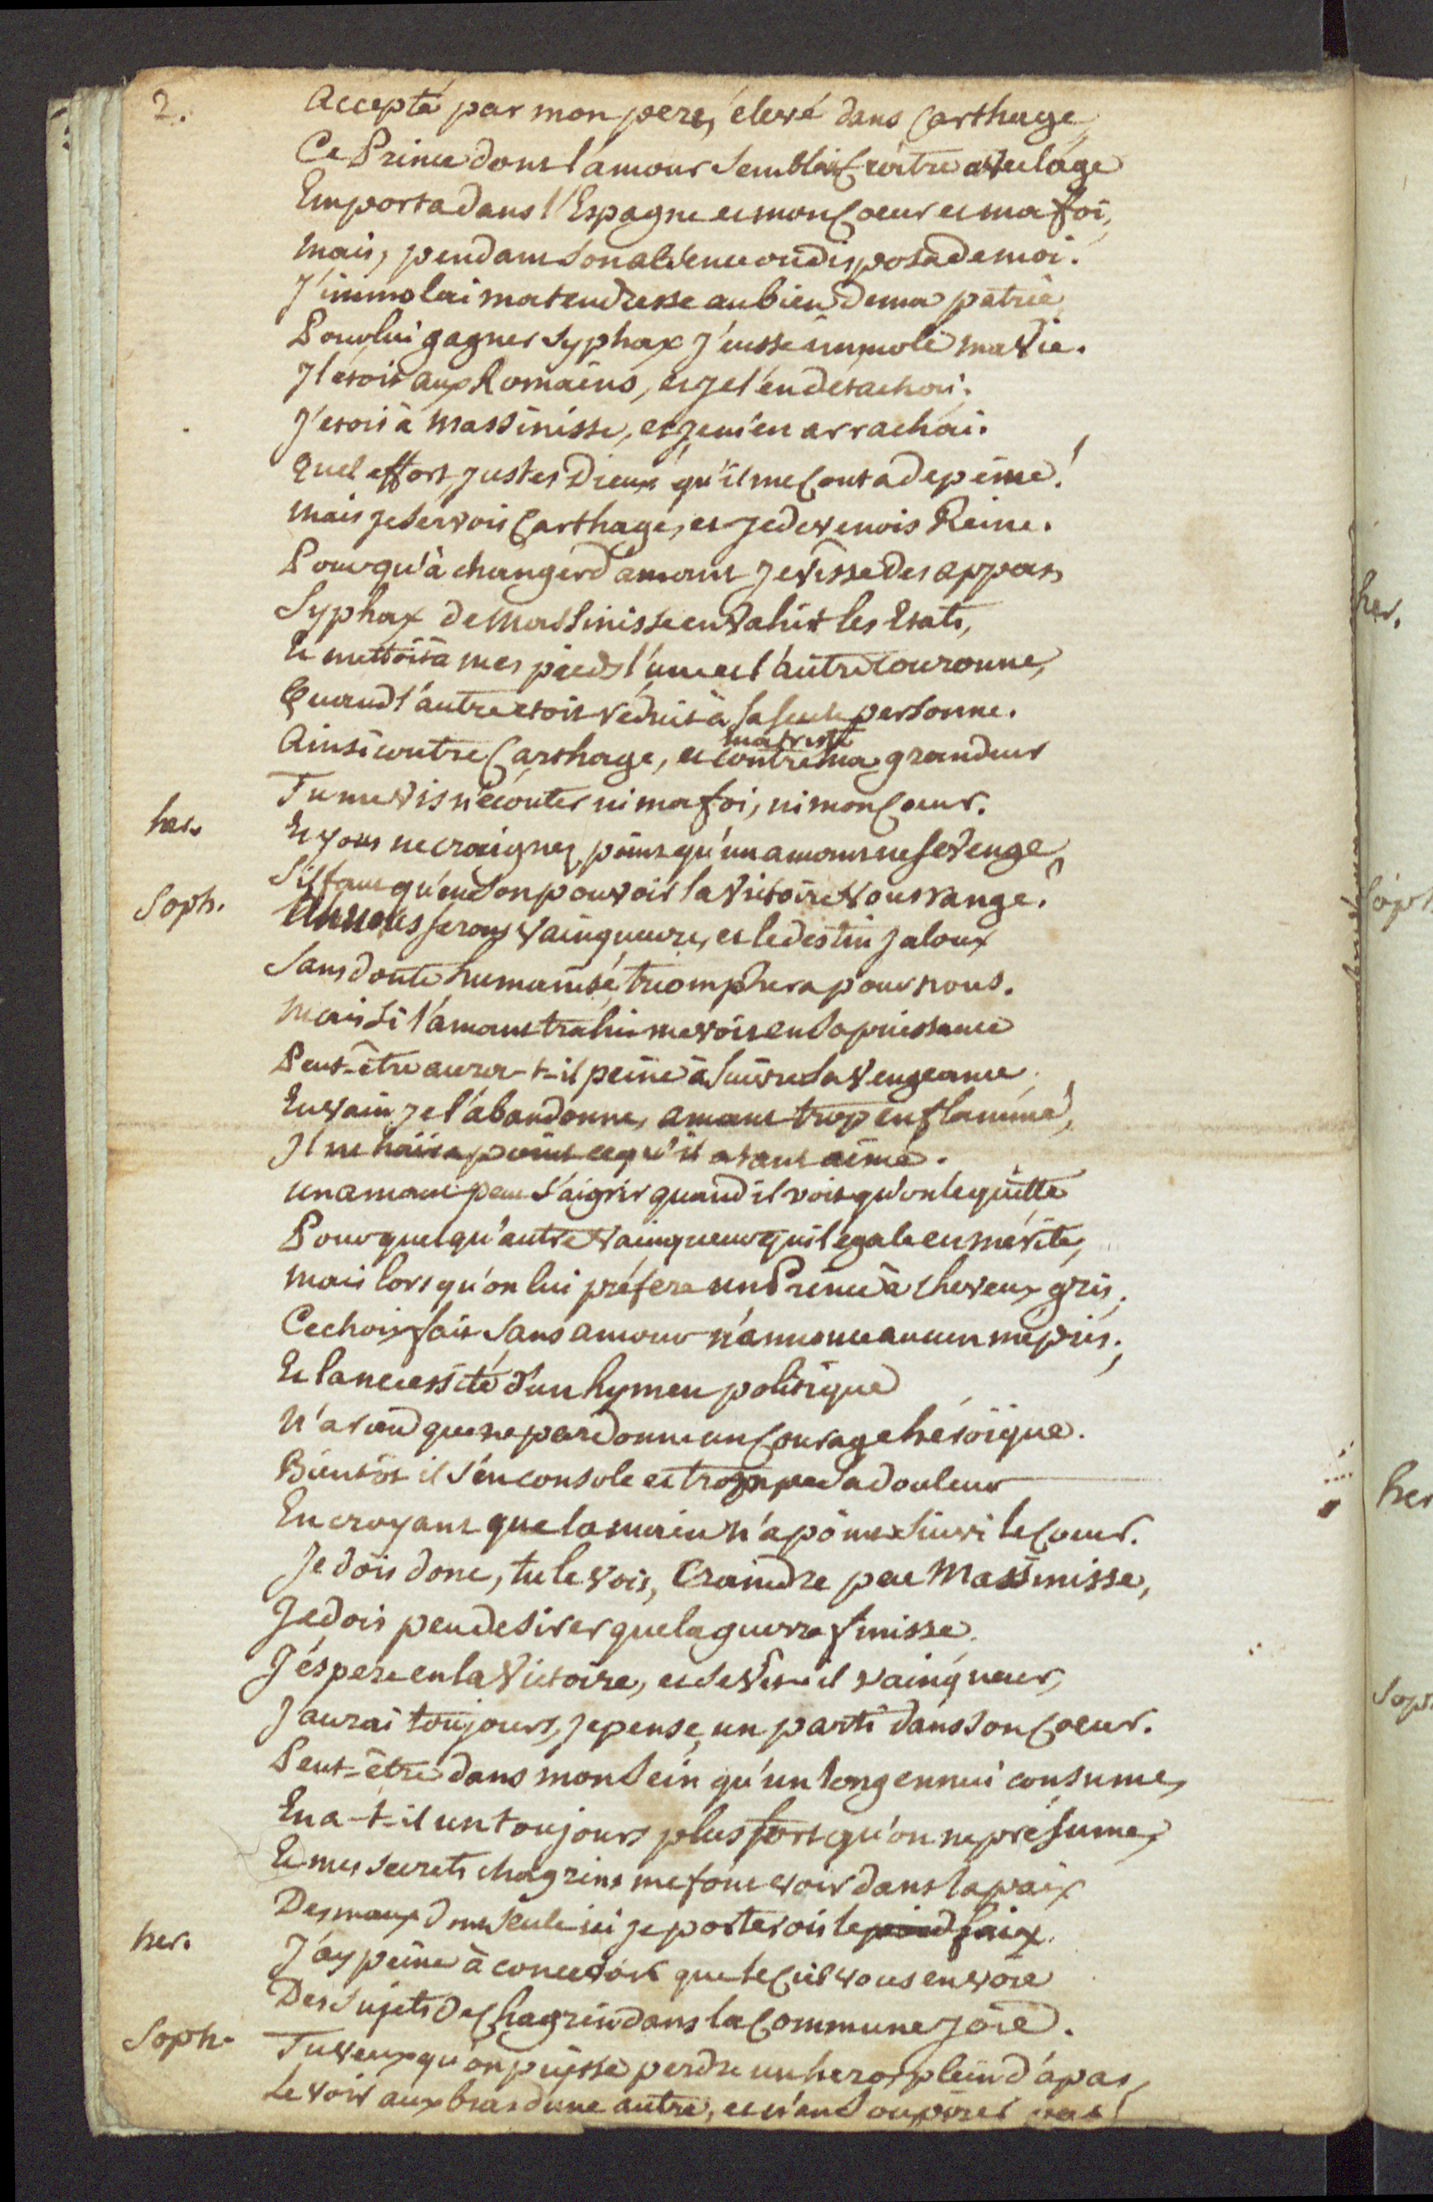 2.
Accepté par mon pere, élevé dans Carthage,
Ce Prince dont l'amour sembloit croitre avec l'age
Emporta dans l'Espagne et mon Coeur et ma foi,
mais, pendant son absence on disposa de moi.
J'immolai ma tendresse au bien de ma patrie
Pour lui gagner Syphax j'eusse immolé ma vie.
Il etoit aux Romains, et je l'en detachai;
J'etois à Massinisse, et je m'en arrachai.
Quel effort, justes Dieux! qu'il me Couta de peine!
mais je servois Carthage, et je devenois Reine.
Pour qu'à changer d'amant je visse des appas,
Syphax de Massinisse envahit les Etats,
Et mettoit à mes pieds l'une et l'autre couronne,
Quand l'autre etoit réduit à sa seule personne.
Ainsi contre Carthage, et contre ma grandeur
Tu me vis n'écouter ni ma foi, ni mon Coeur.
her. Et vous ne craignez point qu'un amant ne se venge
S'il faut qu'en son pouvoir la victoire vous range?
Soph. Nous serons vainqueurs, et le destin jaloux
Sans doute humanisé, triomphera pour nous.
Mais si l'amant trahi me voit en sa puissance
Peut-être aura-t-il peine à suivre sa vengeance.
En vain je l'abandonne, amant trop enflammé,
Il ne haïra point ce qu'il a tant aimé.
un amant peut s'aigrir quand il voit qu'on le quitte
Pour quelqu'autre vainqueur qui l'égale en mérite,
mais lorsqu'on lui préfere un Prince à cheveux gris,
Ce choix fait sans amour n'annonce aucun mepris;
Et la necessité d'un hymen politique
N'a rien que ne pardonne un Courage héroïque.
Bientôt il s'en console et trompe sa douleur
En croyant que la main n'a point suivi le Coeur.
Je dois donc, tu le vois, Craindre peu Massinisse,
Je dois peu desirer que la guerre finisse.
J'espere en la Victoire, et se vit-il vainqueur,
J'aurai toujours, je pense, un parti dans son Coeur.
Peut-être dans mon Sein qu'un long ennui consume,
En a-t-il un toujours plus fort qu'on ne présume,
Et mes secrets chagrins me font voir dans la paix
Des maux dont seule ici je porterois le faix.
her. J'ay peine à concevoir que le Ciel vous envoie
Des sujets de Chagrin dans la Commune joie.
Soph. Tu veux qu'on puisse perdre un heros plein d'apas,
Le voir aux bras d'une autre, et n'en soupirer pas!
her.
Soph
her
Soph